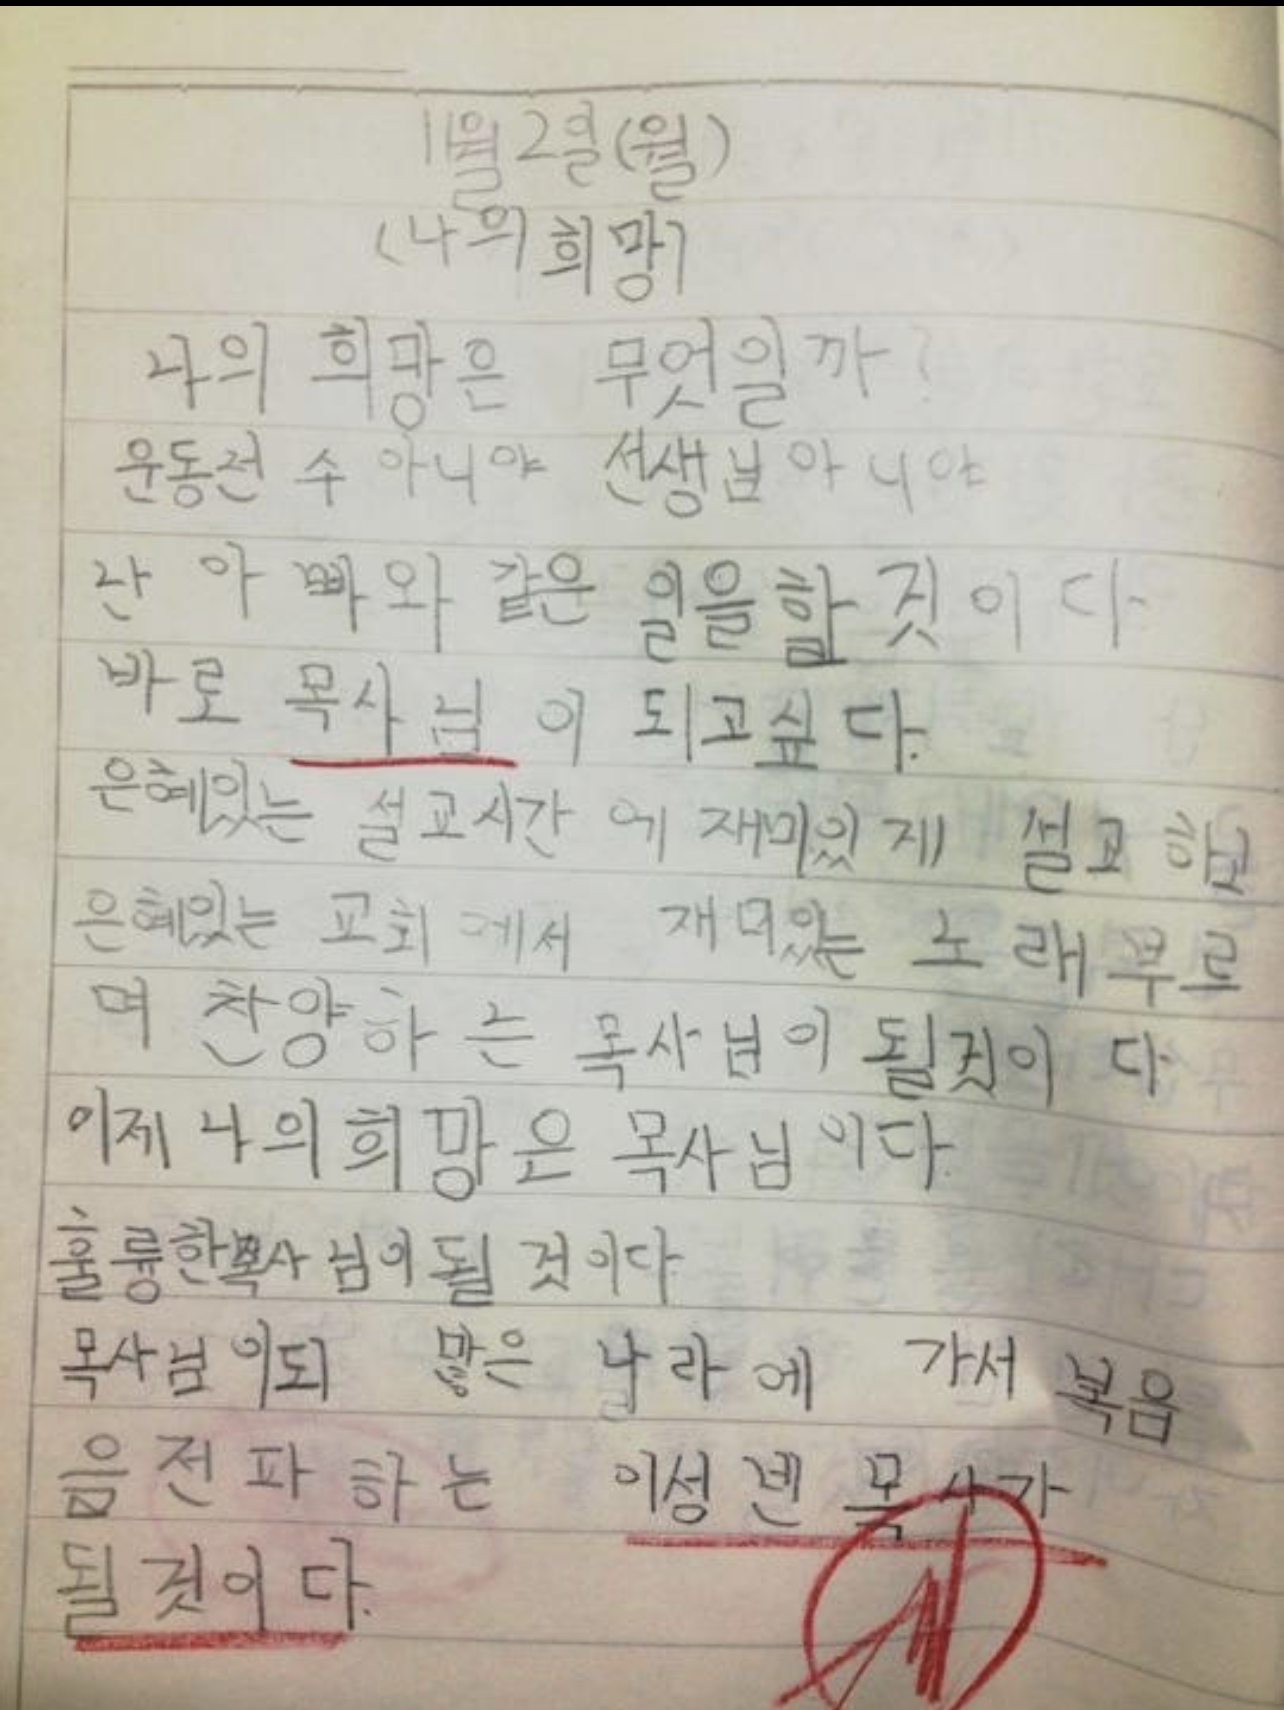 11월 2일 (월)
(나의 희망)
나의 희망은 무엇일까?
운동전수 아니야 선생님 아니야
난 아빠와 같은 일을 할 것이다.
바로 목사님이 되고싶다.
은혜있는 설교시간에 재미있게 설교하고
은혜있는 교회에서 재미있는 노래부르
며 찬양하는 목사님이 될것이다
이제 나의 희망은 목사님이다.
훌륭한목사님이 될 것이다
목사님이되 많은 나라에 가서 복음
음전파하는 이성 목사가
될것이다.